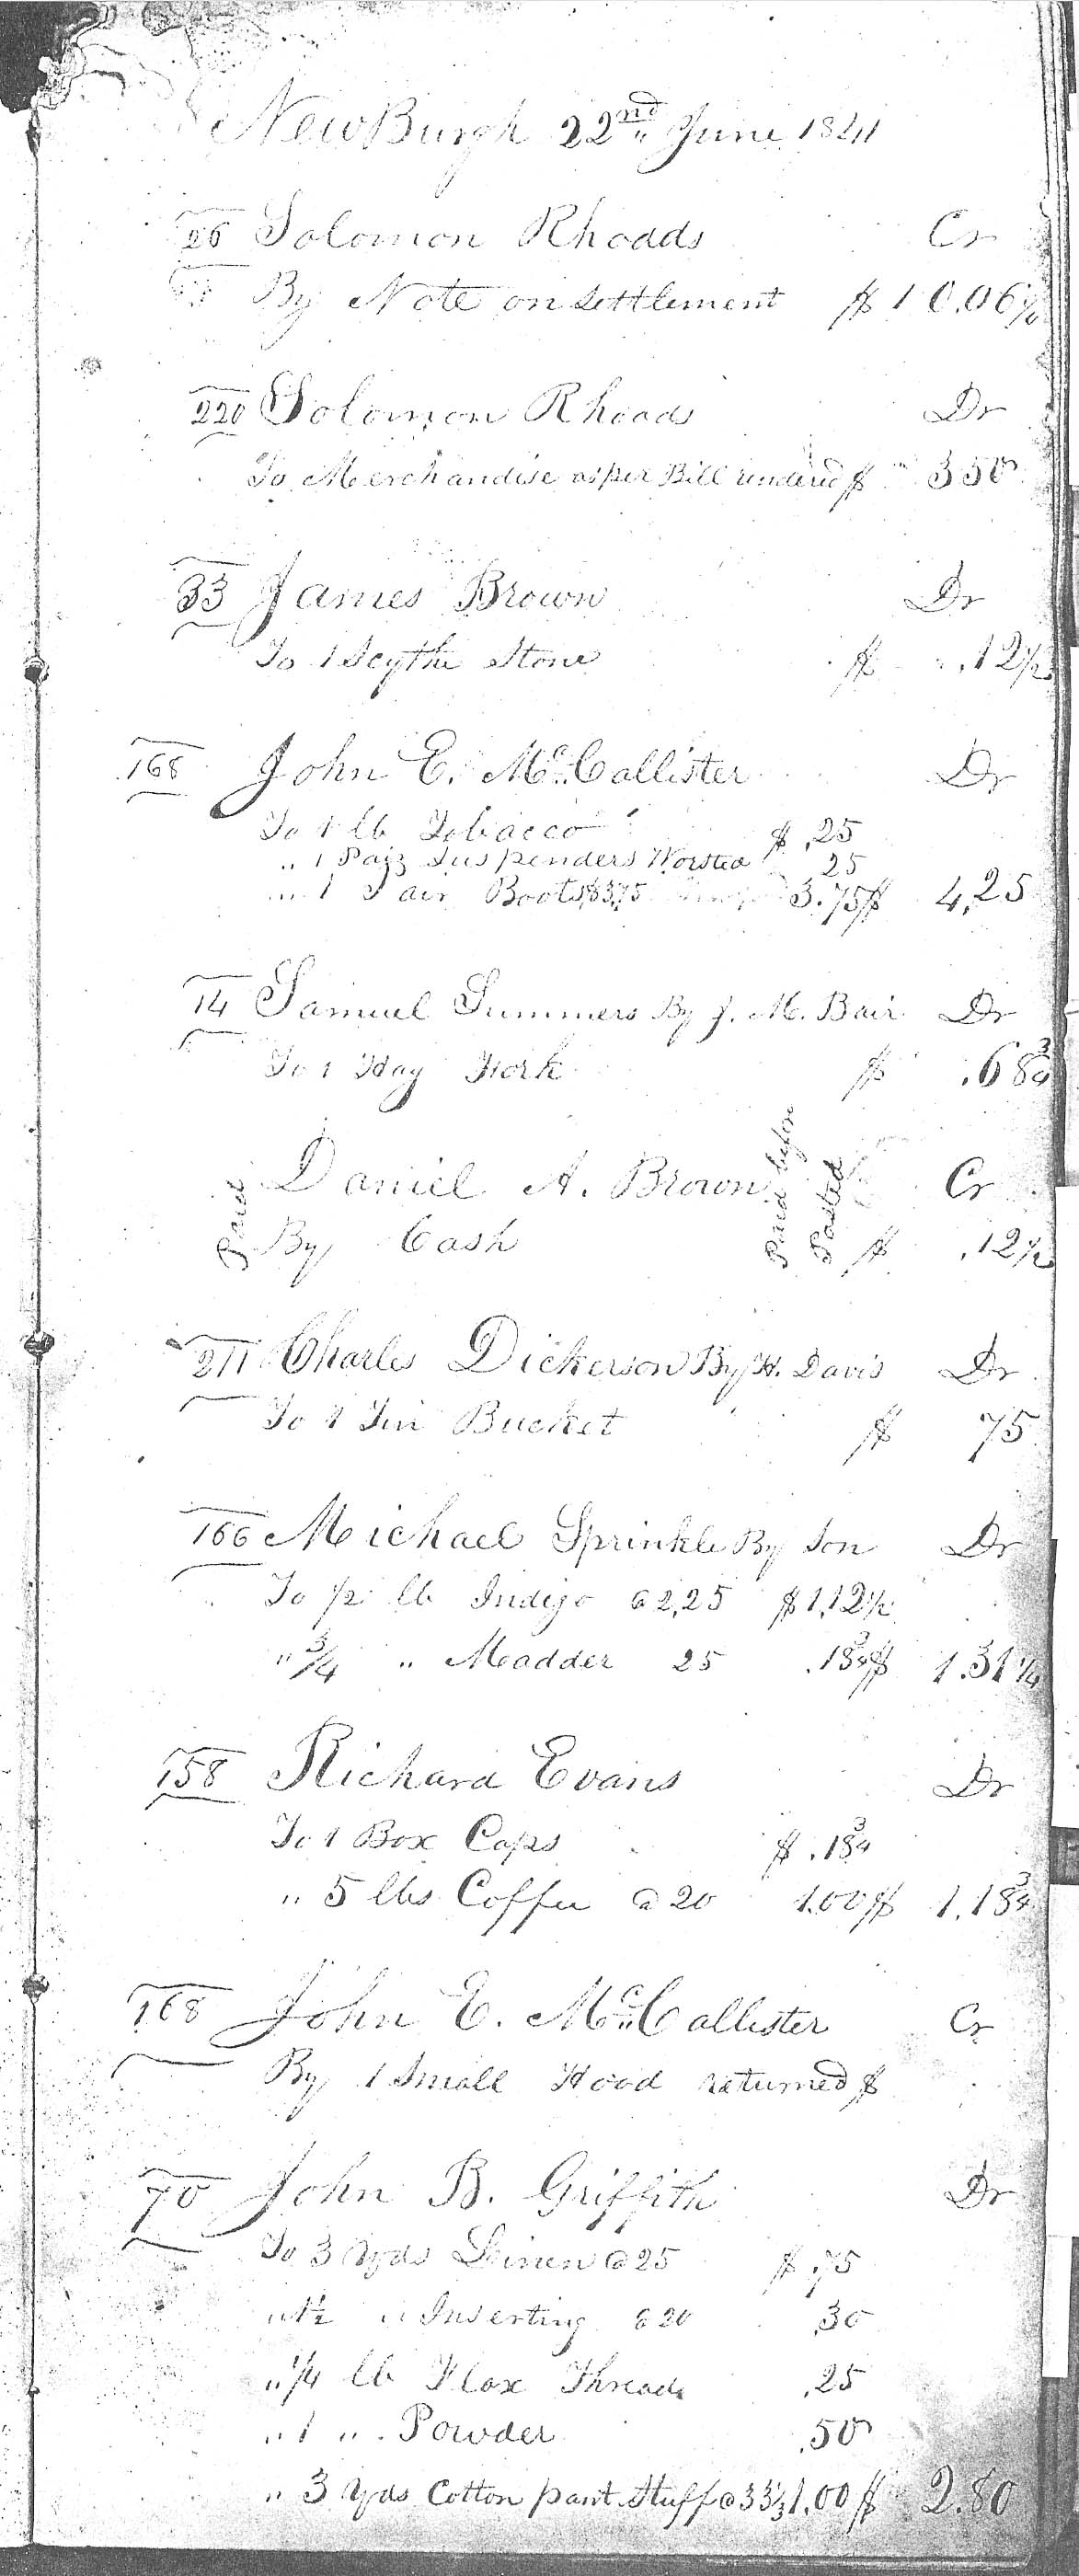 NewBurgh 22nd June 1841
26 Solomon Rhoads Cr
By Note on settlement $10.06½
220 Solomon Rhoads Dr
To Merchandise as per Bill rendered $ 350
33 James Brown Dr
To 1 Scythe Stone $ .12½
168 John E. Mc.Callister Dr
To 1 lb Tobacco $ .25
" 1 Pair Suspenders Worsted 25
" 1 Pair Boots $3.75 3.75 $ 4.25
14 Samuel Summers By J. M. Bair Dr
To 1 Hay Fork $ .68¾
Paid Daniel A. Brown Paid before Posted Cr
By Cash $ .12½
211 Charles Dickerson By H. Davis Dr
To 1 Tin Bucket $ 75
166 Michael Sprinkle By Son Dr
To ½ lb Indigo @ 2,25 $1,12½
" ¾ " Madder 25 .18¾ $ 1.31¼
158 Richard Evans Dr
To 1 Box Caps $ .18¾
" 5 lbs Coffee @ 20 1.00 $ 1.18¾
168 John E. Mc.Callister Cr
By 1 Small Hood returned $
70 John B. Griffith Dr
To 3 Yds Linen @ 25 $ .75
" 1½ " Inserting @ 20 .30
" ¼ lb Flax Thread .25
" 1 " Powder .50
" 3 Yds Cotton pant Stuff @ 33⅓ 1.00 $ 2.80